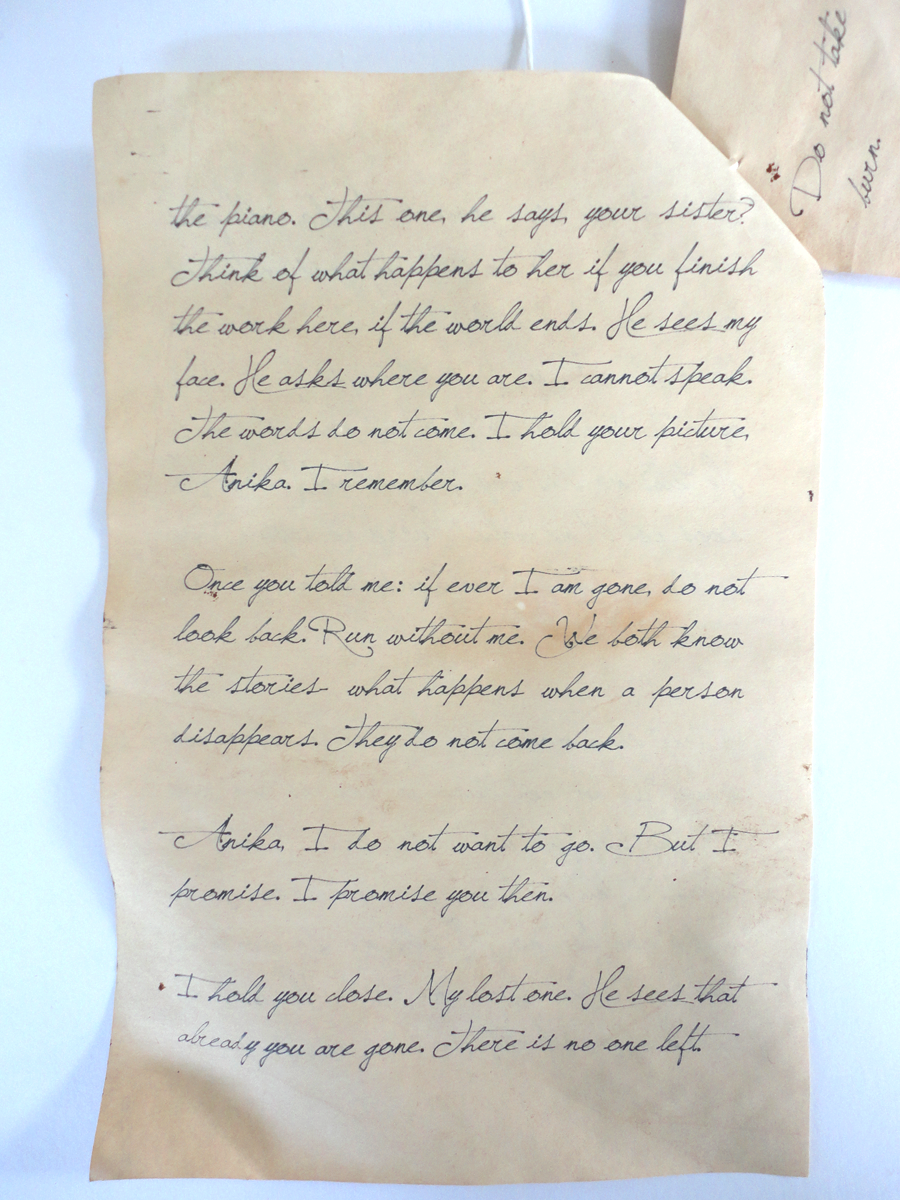 the piano. This one, he says, your sister?
Think of what happens to her if you finish
the work here, if the world ends. He sees my
face. He asks where you are. I cannot speak.
The words do not come. I hold your picture,
Anika. I remember.
Once you told me: if ever I am gone, do not
look back. Run without me. We both know
the stories- what happens when a person
disappears. They do not come back.
Anika, I do not want to go. But I
promise. I promise you then.
I hold you close. My lost one. He sees that
already you are gone. There is no one left.
Do not take
burn.